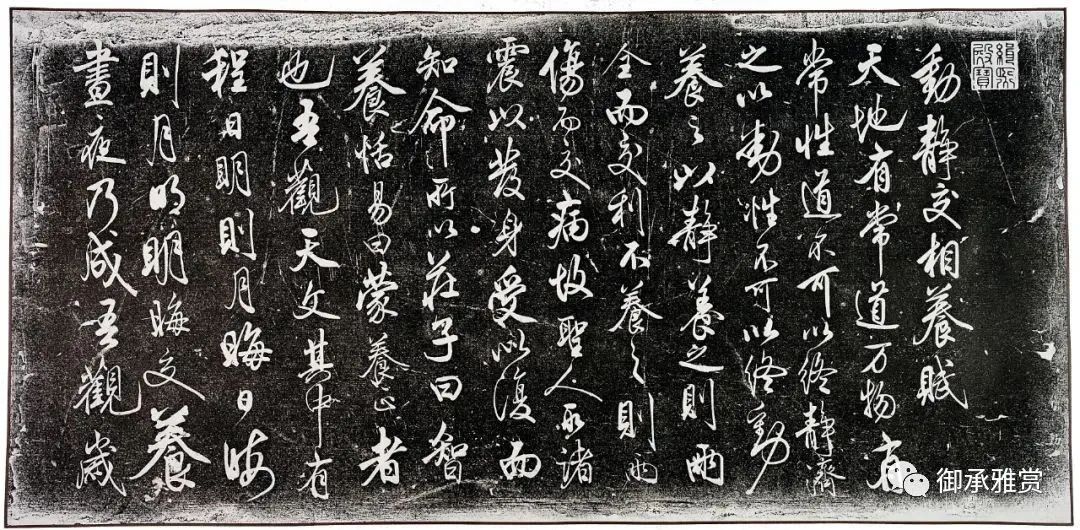 緝熙殿寶
動靜交相養賦
天地有常道万物有
常性道不可以終靜濟
之以動性不可以終動
養之以靜養之則兩
全而交利不養之則兩
傷而交病故聖人取諸
震以發身受以復而
知命所以莊子曰智
養恬易曰蒙養正者
也吾觀天文其中有
程日明則月晦日晦
則月明明晦交養
晝夜乃成吾觀歲
御承雅赏